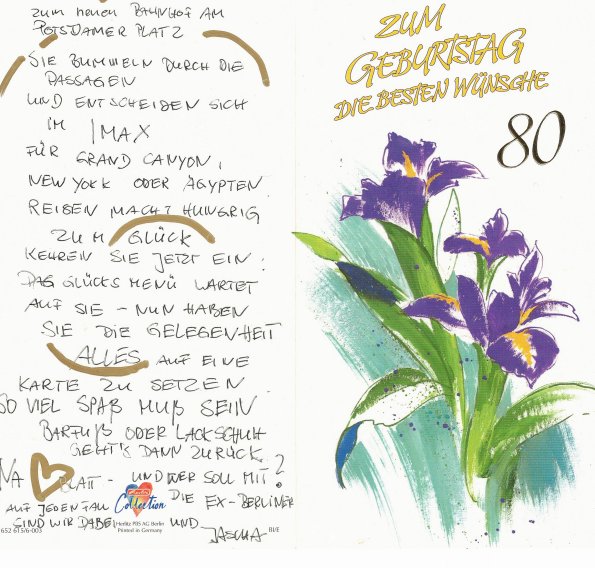 ZUM NEUEN BAHNHOF AM
POTSDAMER PLATZ
SIE BUMMELN DURCH DIE
PASSAGEN
UND ENTSCHEIDEN SICH
IM IMAX
FÜR GRAND CANYON,
NEW YORK ODER ÄGYPTEN
REISEN MACHT HUNGRIG
ZUM GLÜCK
KEHREN SIE JETZT EIN:
DAS GLÜCKSMENÜ WARTET
AUF SIE - NUN HABEN
SIE DIE GELEGENHEIT
ALLES AUF EINE
KARTE ZU SETZEN
SO VIEL SPAß MUß SEIN
BARFUß ODER LACKSCHUH
GEHT'S DANN ZURÜCK.
NA PLATT - UND WER SOLL MIT?
AUF JEDEN FALL DIE EX-BERLINER
SIND WIR DABEI UND JASCHA
Collection
Herlitz PBS AG Berlin
Printed in Germany
652 615/6-003
BI/E
ZUM
GEBURTSTAG
DIE BESTEN WÜNSCHE
80